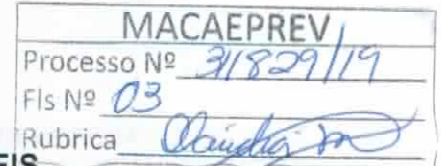 MACAEPREV
Processo Nº 311829/19
Fls Nº 03
Rubrica
EIS